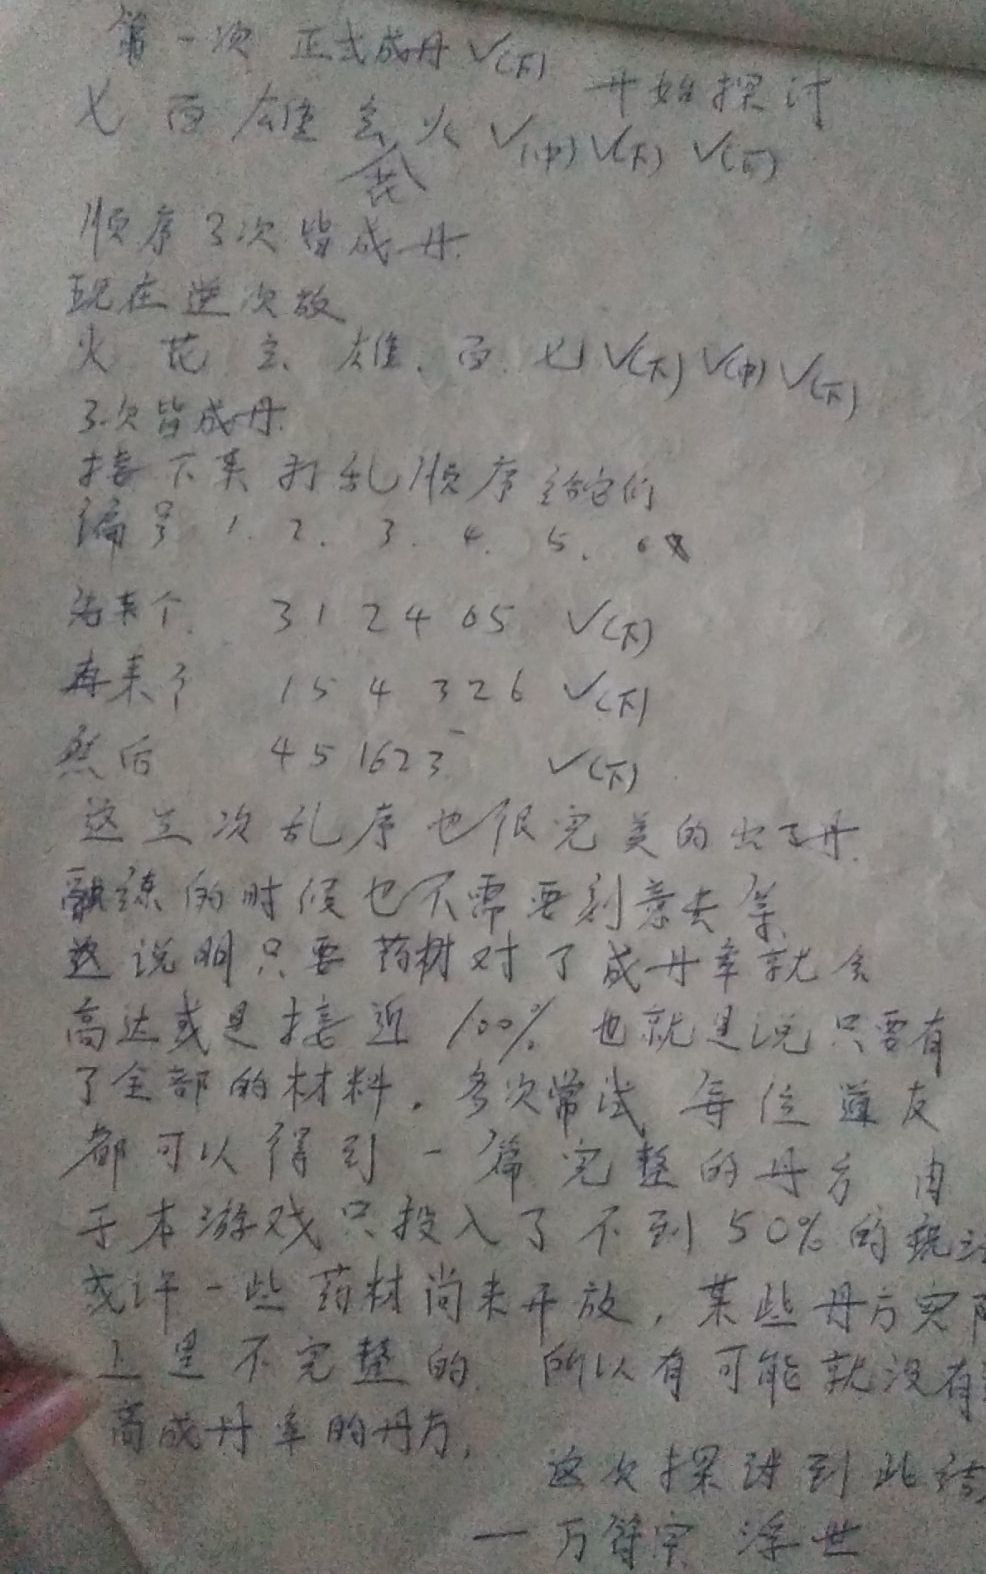 第一次 正式成丹 √(下)
开始探讨
七 百 雄 玄 火 √(中) √(下) √(下)
花
顺序3次皆成丹.
现在逆次放
火 花 玄. 雄. 百. 七 √(下) √(中) √(下)
3次皆成丹.
接下来打乱顺序 给它们
编号 1. 2. 3. 4. 5. 6
先来个 3 1 2 4 6 5 √(下)
再来个 1 5 4 3 2 6 √(下)
然后 4 5 1 6 2 3 √(下)
这三次乱序也很完美的出了丹.
融炼的时候也不需要刻意去等
这说明只要药材对了成丹率就会
高达或是接近100% 也就是说只要有
了全部的材料. 多次常试 每位道友
都可以得到一篇完整的丹方 由
于本游戏只投入了不到50%的
或许一些药材尚未开放, 某些丹方实
上是不完整的. 所以有可能就没有
高成丹率的丹方.
这次探讨到此结
一万符宗 浮世